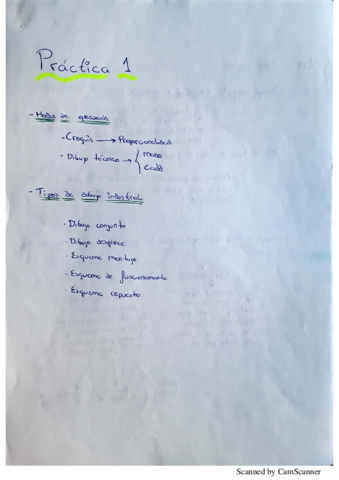 Práctica 1
- Modo de
- Croquis → Proporcionalidad
- Dibujo técnico → { mano
Cadd
- Tipos de dibujo industrial
· Dibujo conjunto
· Dibujo despiece
· Esquema montaje
· Esquema de funcionamiento
· Esquema repuesto
Scanned by CamScanner